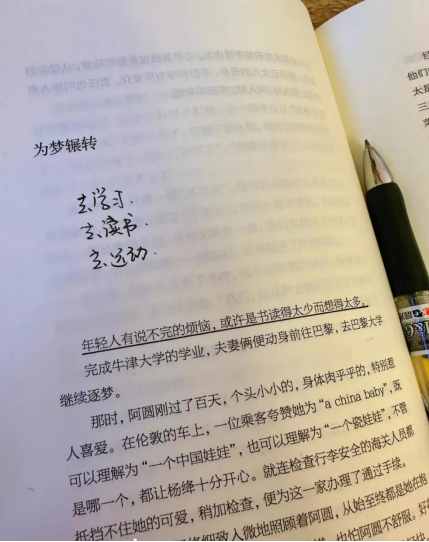 为梦辗转
去学习.
去读书.
去运动.
年轻人有说不完的烦恼，或许是书读得太少而想得太多。
完成牛津大学的学业，夫妻俩便动身前往巴黎，去巴黎大学
继续逐梦。
那时，阿圆刚过了百天，个头小小的，身体肉乎乎的，特别惹
人喜爱。在伦敦的车上，一位乘客夸赞她为“a china baby”，既
可以理解为“一个中国娃娃”，也可以理解为“一个瓷娃娃”，不管
是哪一个，都让杨绛十分开心。就连检查行李安全的海关人员都
抵挡不住她的可爱，稍加检查，便为这一家办理了通过手续。
细致入微地照顾着阿圆，从始至终都是她在抱
也怕阿圆不舒服。好
经
他们
太是
三
支